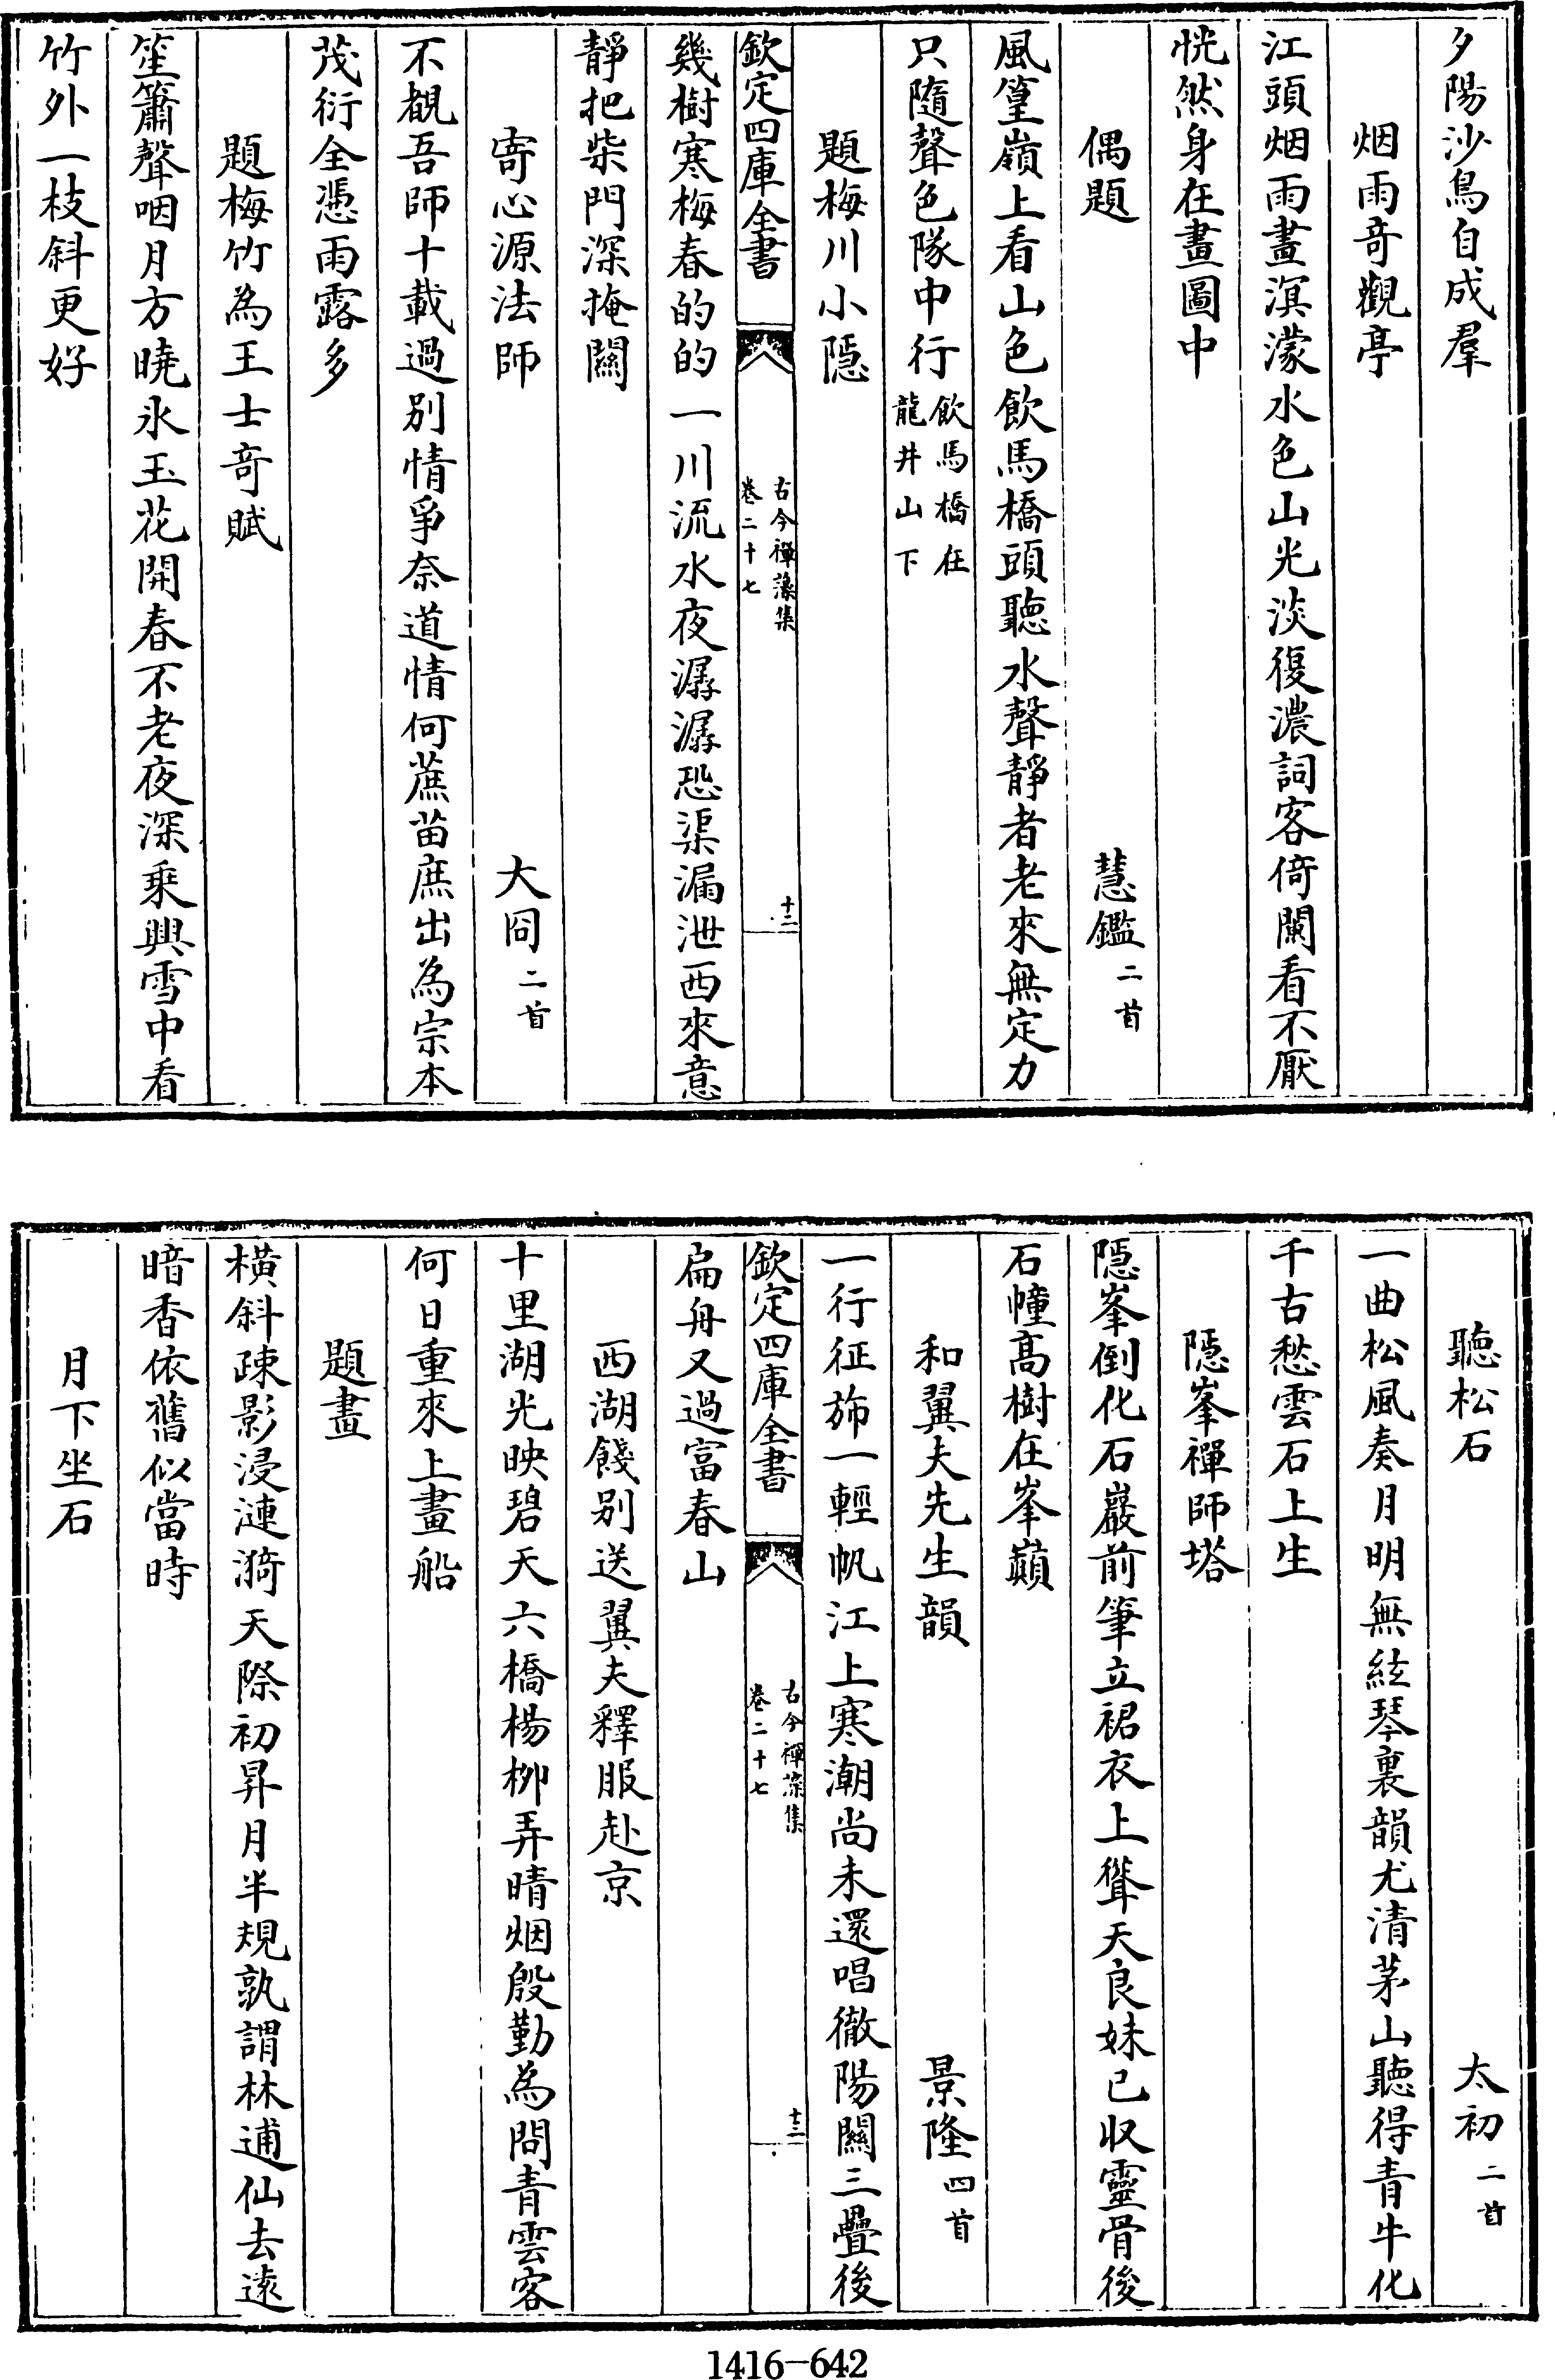 夕陽沙鳥自成羣
烟雨竒觀亭
江頭烟雨畫溟濛水色山光淡復濃詞客倚闌看不厭
恍然身在畫圖中
偶題 慧鑑二首
風篁嶺上看山色飲馬橋頭聽水聲靜者老來無定力
只隨聲色隊中行飲馬橋在龍井山下
題梅川小隱
欽定四庫全書 古今禪藻集 卷二十七 十二
幾樹寒梅春的的一川流水夜潺潺恐渠漏泄西來意
靜把柴門深掩關
寄心源法師 大冏二首
不覩吾師十載過別情爭奈道情何蔗苗庶出為宗本
茂衍全憑雨露多
題梅竹為王士竒賦
笙簫聲咽月方曉氷玉花開春不老夜深乘興雪中看
竹外一枝斜更好
聽松石 太初二首
一曲松風奏月明無絃琴裏韻尤清茅山聽得青牛化
千古愁雲石上生
隱峯禪師塔
隱峯倒化石巖前筆立裙衣上聳天良妹已収靈骨後
石幢高樹在峯巔
和翼夫先生韻 景隆四首
一行征斾一輕帆江上寒潮尚未還唱徹陽關三疊後
欽定四庫全書 古今禪藻集 卷二十七 十三
扁舟又過富春山
西湖餞別送翼夫釋服赴京
十里湖光映碧天六橋楊柳弄晴烟殷勤為問青雲客
何日重來上畫船
題畫
橫斜疎影浸漣漪天際初昇月半規孰謂林逋仙去遠
暗香依舊似當時
月下坐石
1416-642